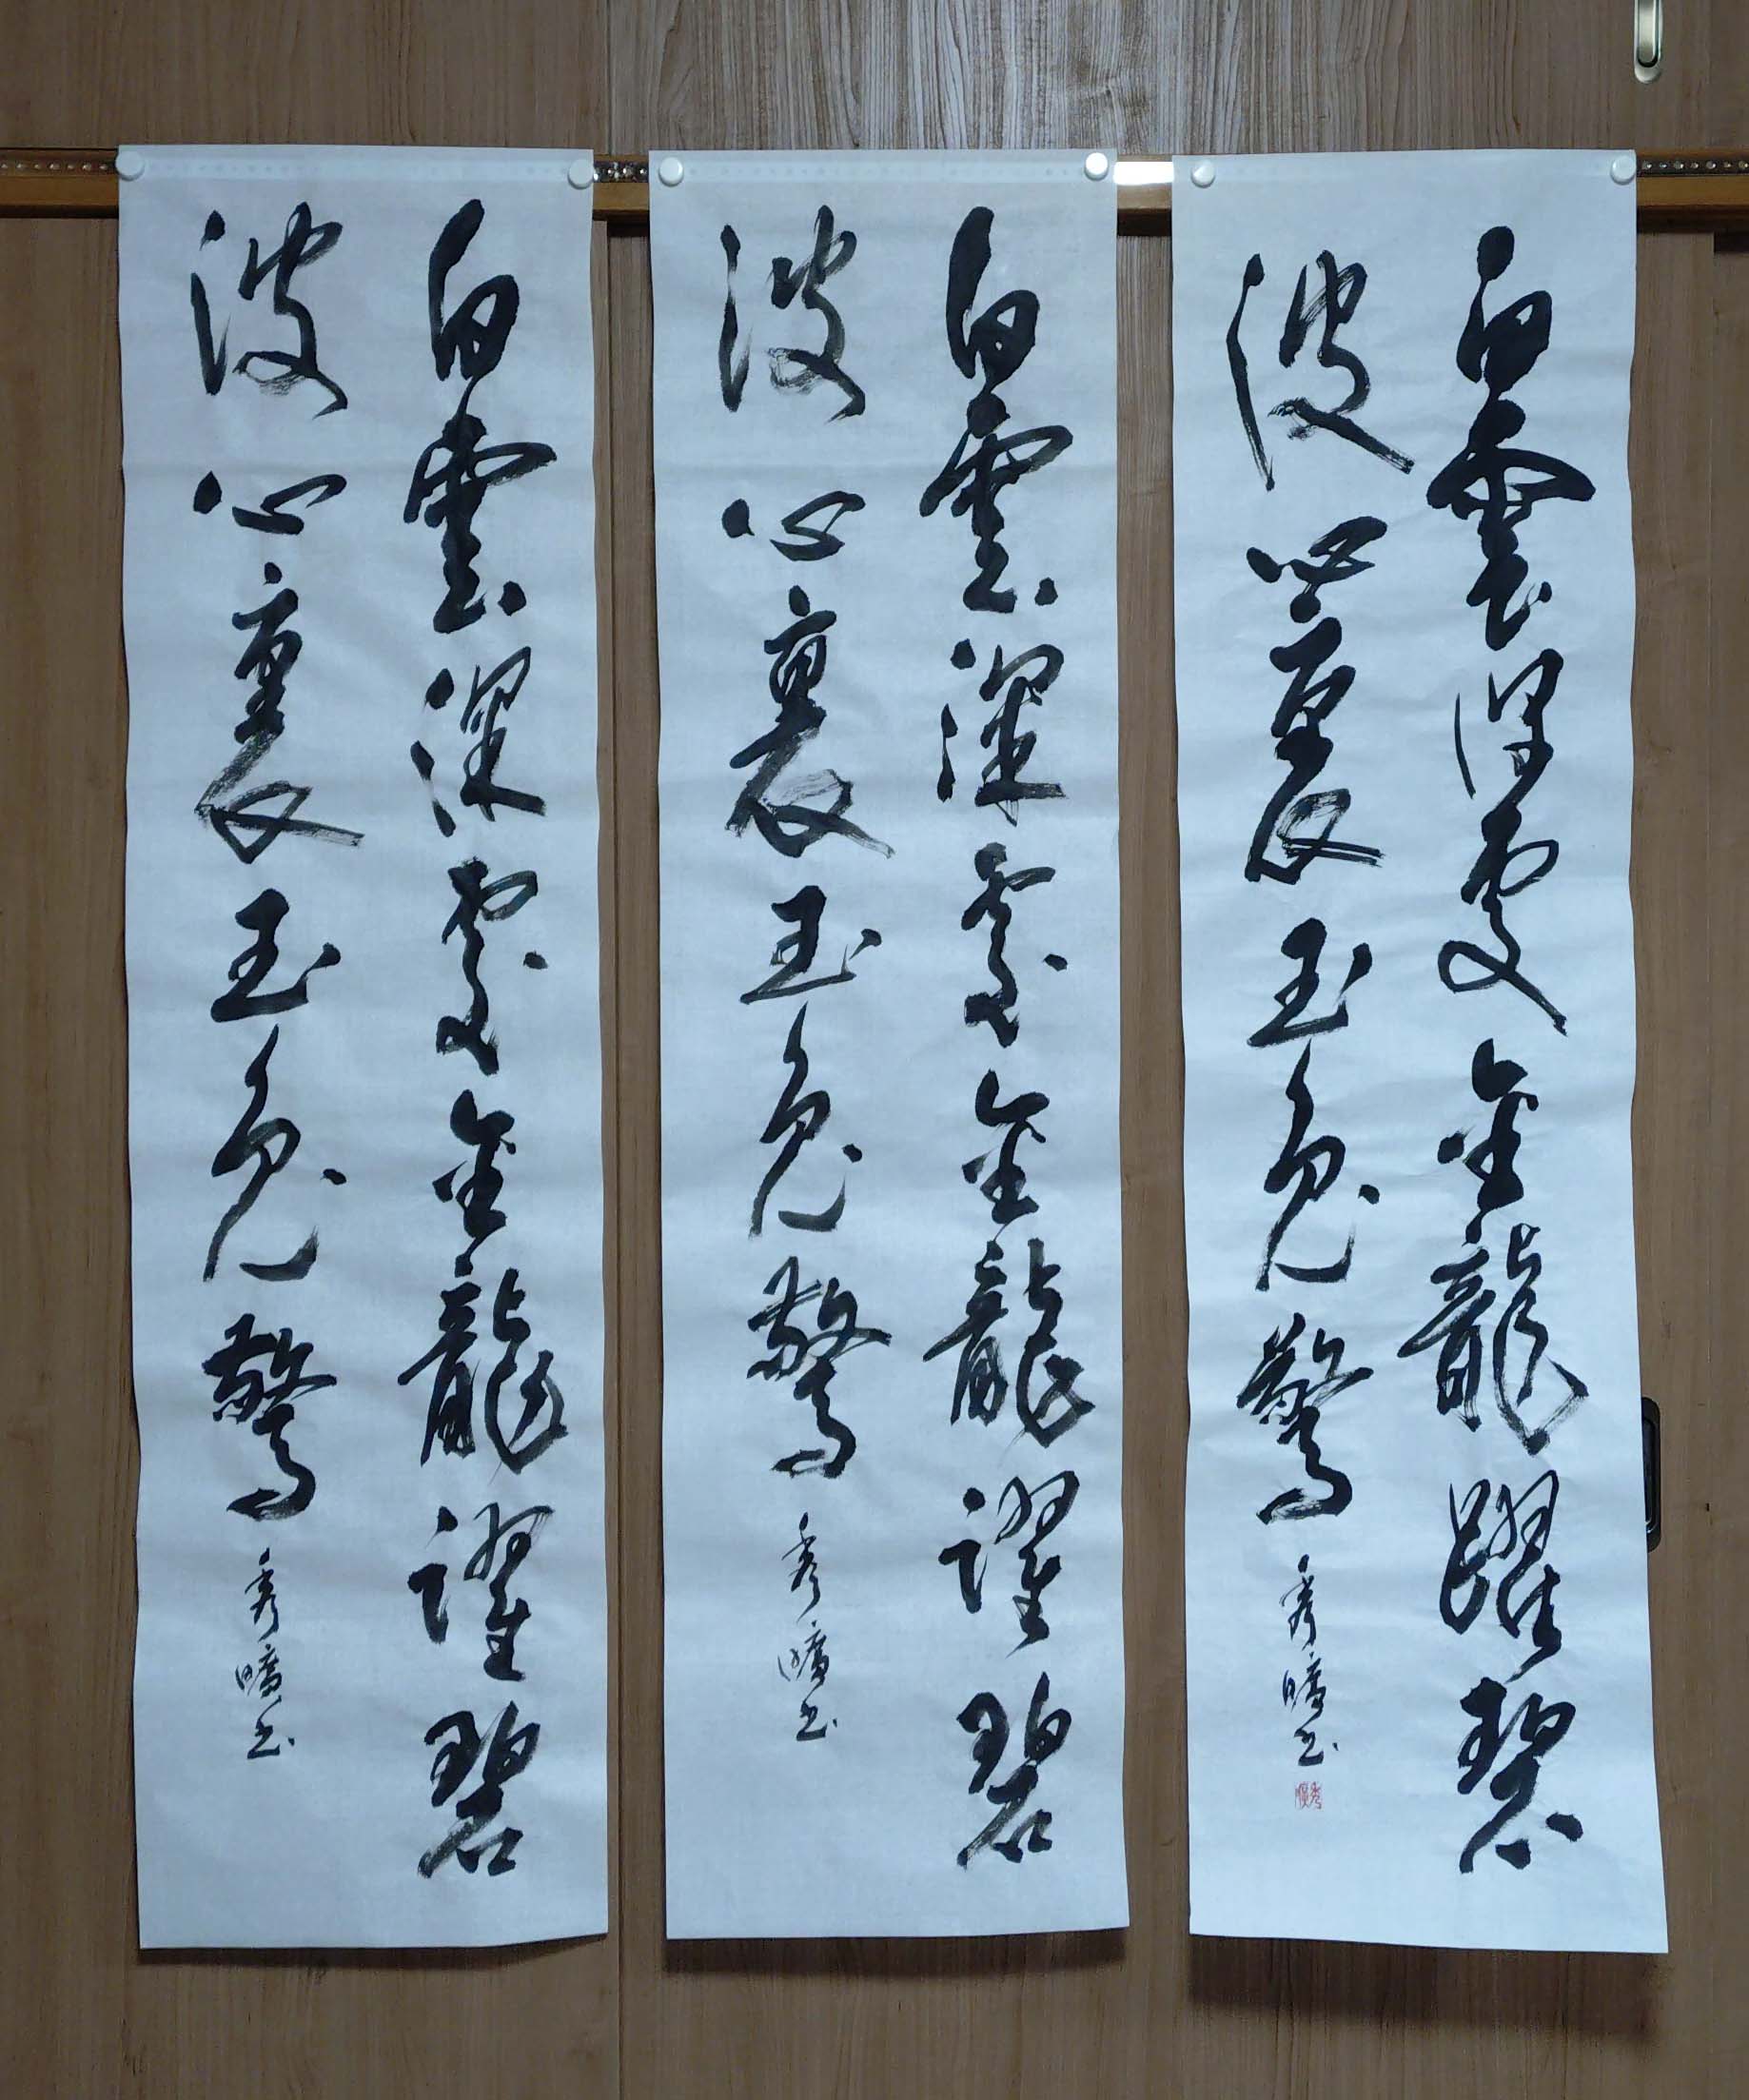 白雲深處金龍躍碧
波心裏玉兔驚
秀曠書
白雲深處金龍躍碧
波心裏玉兔驚
秀曠書
白雲深處金龍躍碧
波心裏玉兔驚
秀曠書